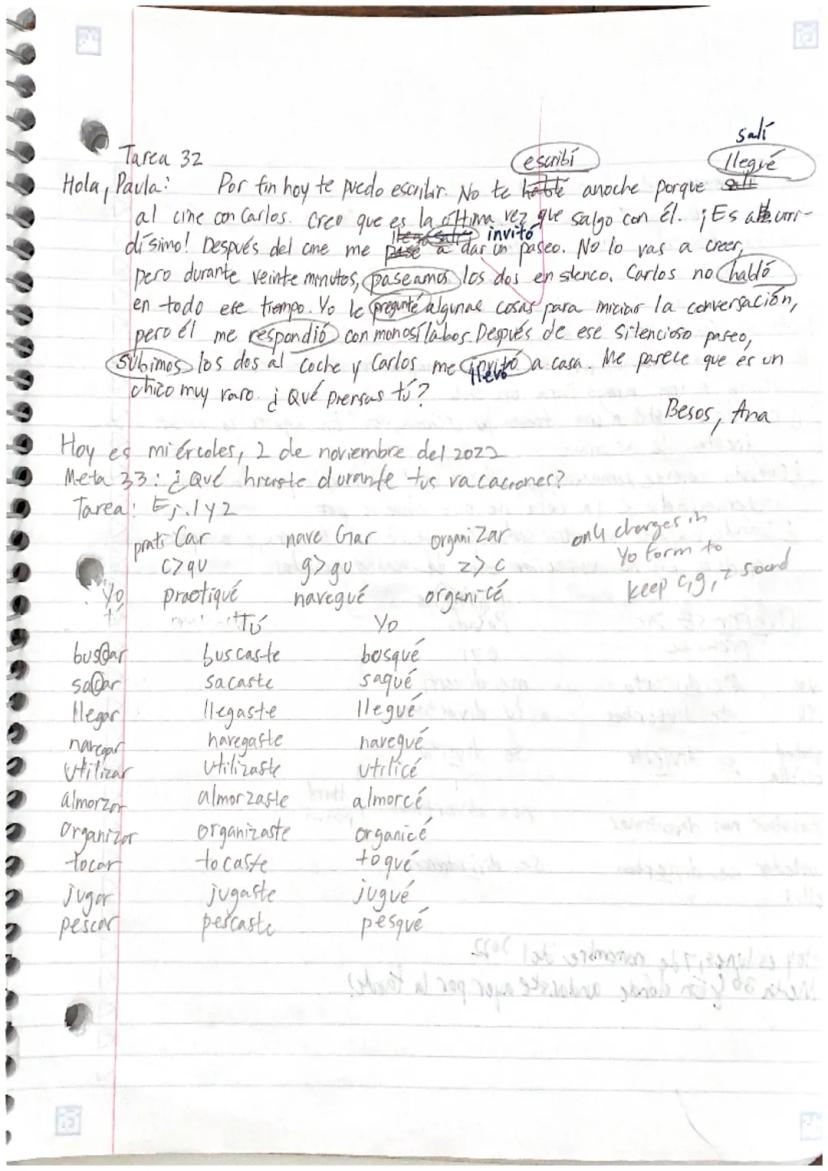 salí
Tarea 32 escribí llegué
Hola, Paula: Por fin hoy te puedo escribir. No te hablé anoche porque salí
al cine con Carlos. Creo que es la última vez que salgo con él. ¡Es aburri-
dísimo! Después del cine me invitó a dar un paseo. No lo vas a creer,
pero durante veinte minutos, paseamos los dos en silencio. Carlos no habló
en todo ese tiempo. Yo le pregunté algunas cosas para iniciar la conversación,
pero él me respondió con monosílabos. Después de ese silencioso paseo,
subimos los dos al coche y Carlos me invitó llevó a casa. Me parece que es un
chico muy raro. ¿Qué piensas tú?
Besos, Ana
Hoy es miércoles, 2 de noviembre del 2022
Meta 33: ¿Qué hiciste durante tus vacaciones?
Tarea: Ej. 1 y 2
prati Car nave Gar organi Zar only changes in
c>qu g>gu z>c Yo form to
Yo practiqué navegué organicé keep c, g, z sound
Tú Yo
buscar buscaste bosqué
sacar sacaste saqué
llegar llegaste llegué
navegar navegaste navegué
utilizar utilizaste utilicé
almorzar almorzaste almorcé
organizar organizaste organicé
tocar tocaste toqué
jugar jugaste jugué
pescar pescaste pesqué